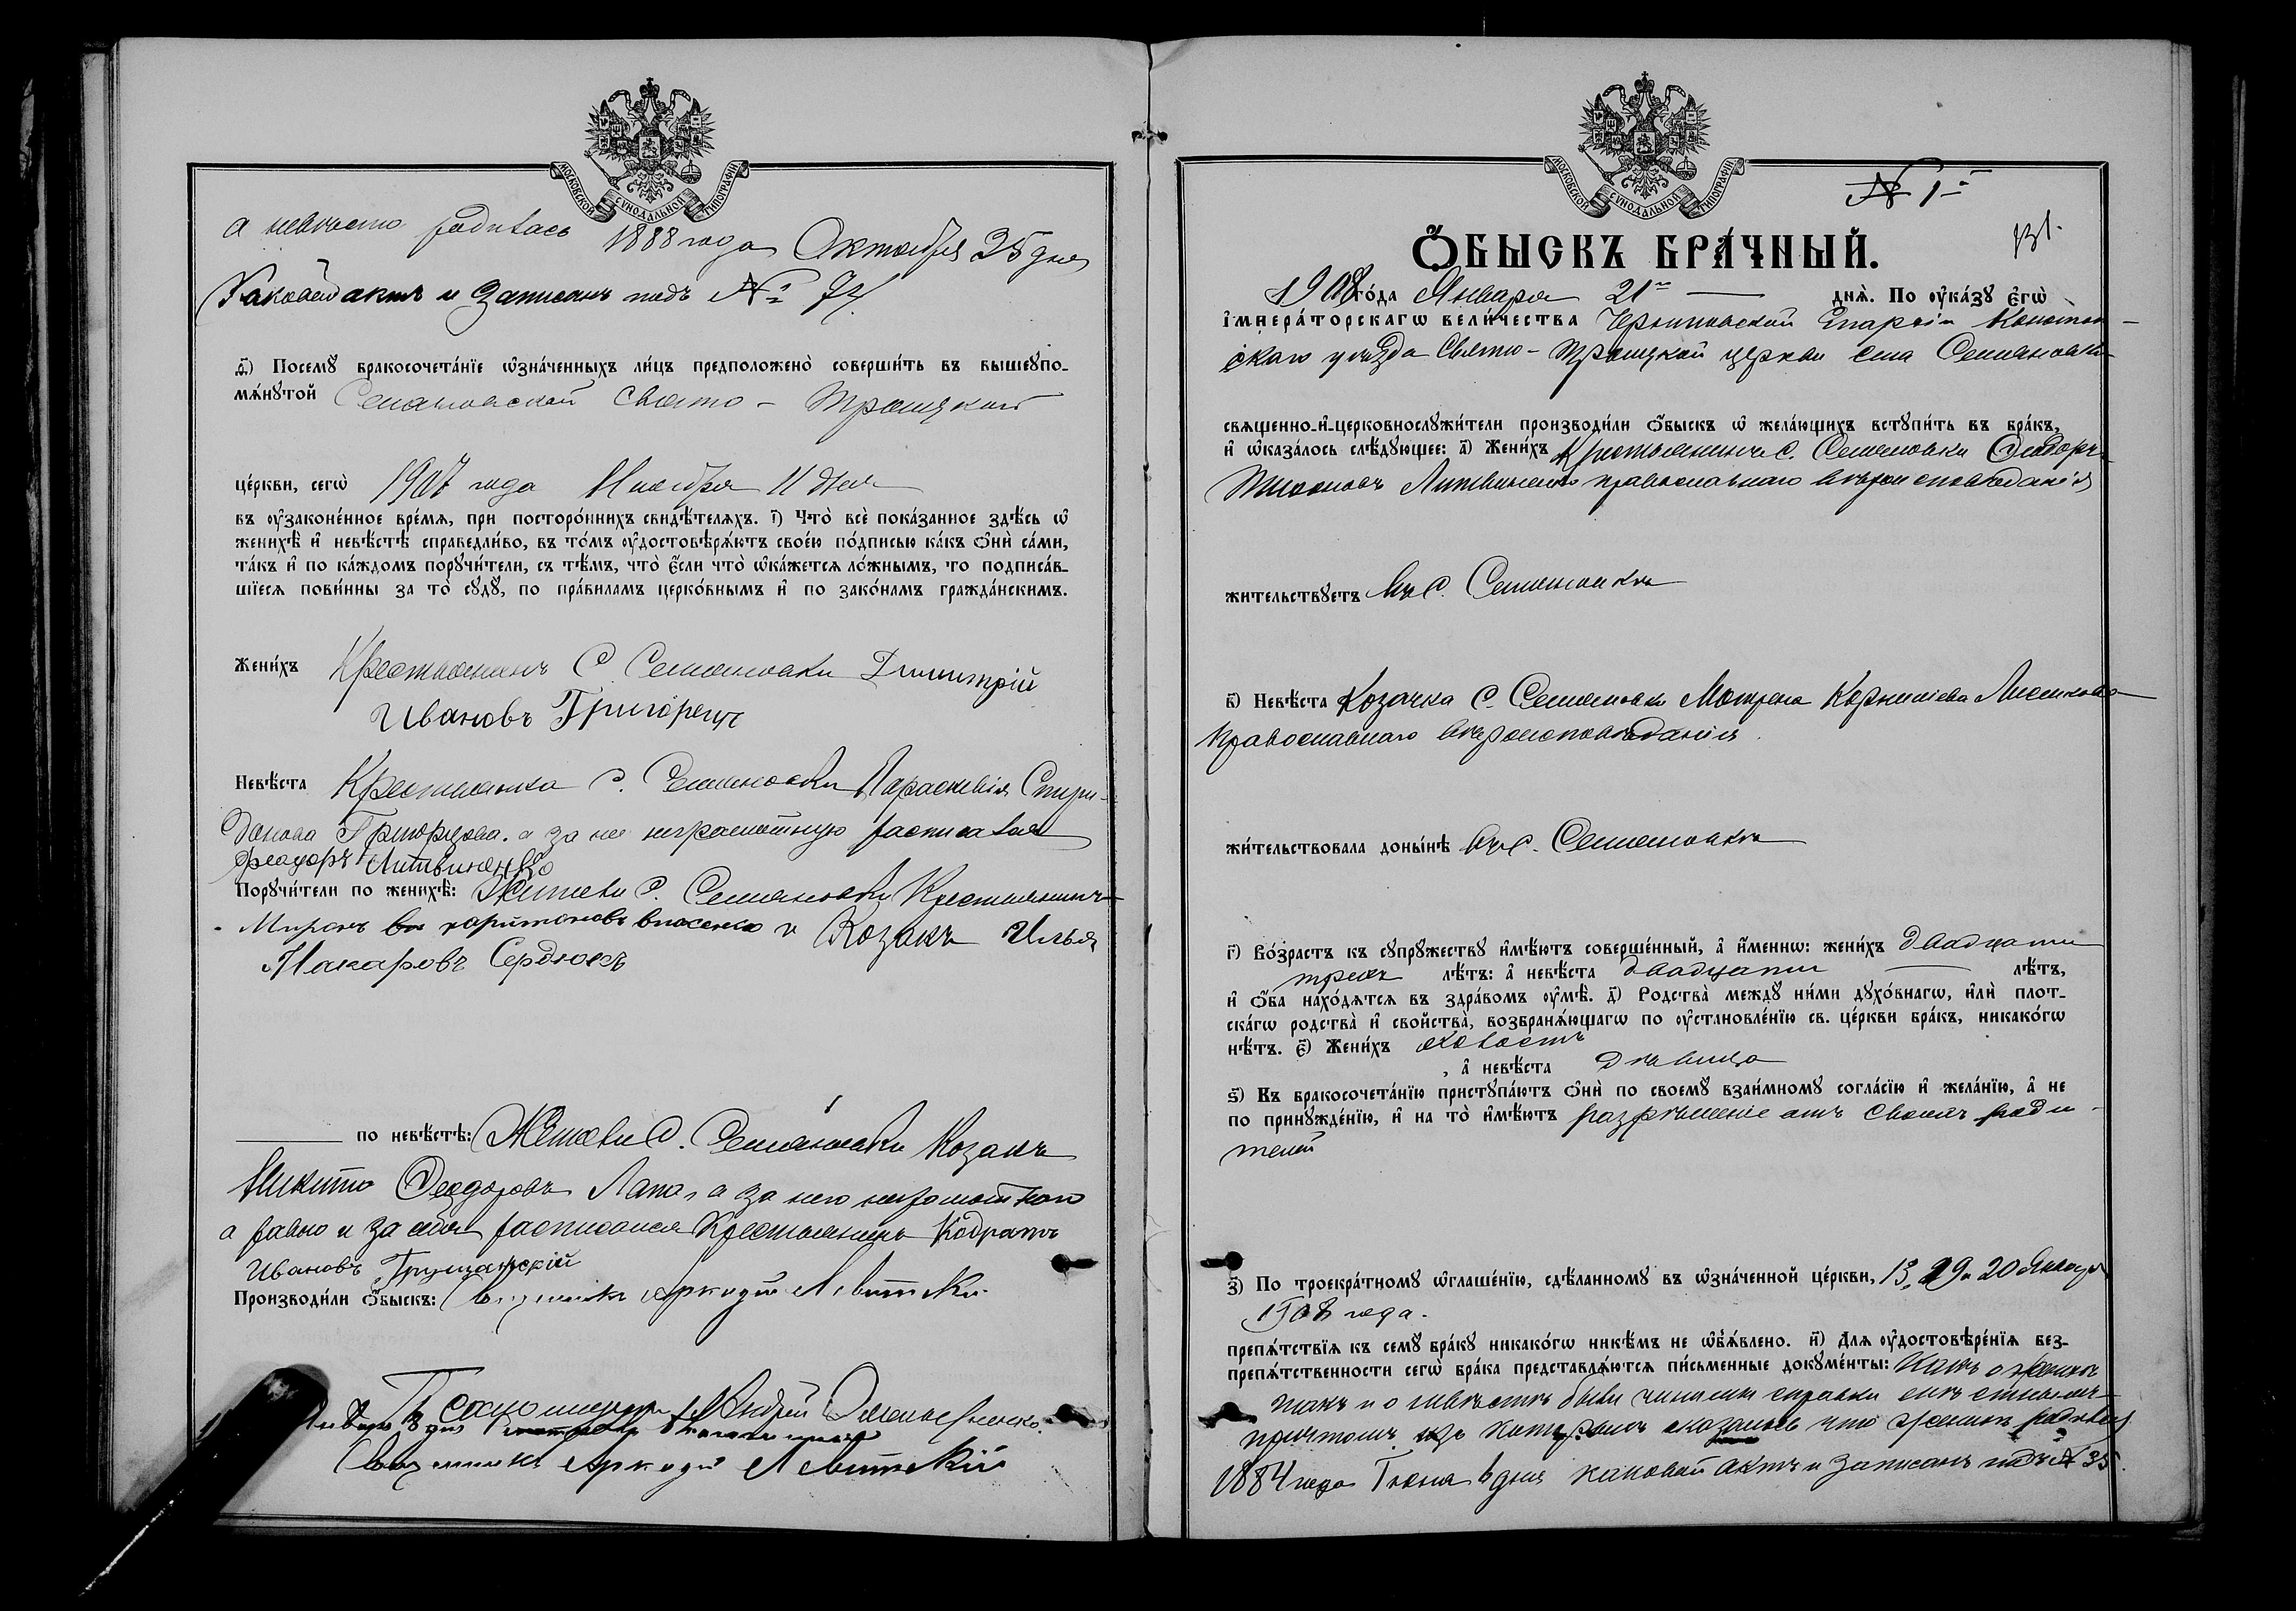 МОСКОВСКОЙ СѴНОДАЛЬНОЙ ТИПОГРАФІИ
а невѣста родилась 1888 года Октября 25 дня
Каковой актъ и записанъ подъ № 74.
д҃і) Посемꙋ бракосочета́нїе ѡ҆зна́ченныхъ ли́цъ предположено̀ соверши́ть въ вышеꙋпо-
мѧ́нꙋтой Семяновской Свято - Троицкой
це́ркви, сегѡ̀ 1907 года Ноября 11 дня
въ ᲂу҆законе́нное вре́мѧ, при посторо́ннихъ свидѣ́телѧхъ. і҃) Что̀ всѐ пока́занное здѣ́сь ѡ҆
женихѣ̀ и҆ невѣ́стѣ справедли́во, въ то́мъ ᲂу҆достовѣрѧ́ютъ свое́ю по́дписью ка́къ ѻ҆нѝ са́ми,
та́къ и҆ по ка́ждомъ порꙋчи́тели, съ тѣ́мъ, что̀ є҆́сли что̀ ѡ҆ка́жется ло́жнымъ, то подписа́в-
шїесѧ пови́нны за то̀ сꙋдꙋ̀, по пра́виламъ церко́внымъ и҆ по зако́намъ гражда́нскимъ.
Жени́хъ Крестьянинъ С. Семяновки Димитрій
Ивановъ Григорецъ
Невѣ́ста Крестьянка С. Семяновки Параскевія Спири-
донова Григорцова. а за нее неграмотную росписался
Феадоръ Литвиненко
Порꙋчи́тели по женихѣ̀: Жители С. Семяновки Крестьянинъ
Миронъ Харитоновъ и Козакъ Илья
Макаровъ Сердюкъ
по невѣ́стѣ: Жители С. Семяновки Козакъ
Никита Феодоровъ Лапа, а за него неграмотнаго
а равно и за себя росписался Крестьянинъ Кодратъ
Ивановъ Грущанскій
Производи́ли ѻ҆́быскъ: Священникъ Аркадій Левитскій
Псаломщикъ Андрей
Священникъ Аркадій Левитскій
МОСКОВСКОЙ СѴНОДАЛЬНОЙ ТИПОГРАФІИ
№ 1
131.
Ѻ҆́БЫСКЪ БРА́ЧНЫЙ.
1908 го́да Января 21 днѧ̀. По ᲂу҆ка́зꙋ є҆гѡ̀
і҆мпера́торскагѡ вели́чества Черниговской Епархіи Конотоп-
скаго уѣзда Свято - Троицкой церкви села Семяновки
свѧщенно-и҆-церковнослꙋжи́тели производи́ли ѻ҆́быскъ ѡ҆ жела́ющихъ встꙋпи́ть въ бра́къ,
и҆ ѡ҆каза́лось слѣ́дꙋющее: а҃) Жени́хъ Крестьянинъ С. Семяновки Феодоръ
Литвиненко православнаго вѣроисповѣданія
жи́тельствꙋетъ въ С. Семяновкѣ
в҃) Невѣ́ста Козачка С. Семяновки Матрона Корниліева
Православнаго вѣроисповѣданія.
жи́тельствовала доны́нѣ въ С. Семяновкѣ
г҃) Во́зрастъ къ сꙋпрꙋ́жествꙋ и҆мѣ́ютъ соверше́нный, а҆ и҆́меннѡ: жени́хъ двадцати
трехъ лѣ́тъ: а҆ невѣ́ста двадцати лѣ́тъ,
и҆ ѻ҆́ба нахо́дѧтсѧ въ здра́вомъ ᲂу҆мѣ̀. д҃) Родства̀ междꙋ̀ ни́ми дꙋхо́внагѡ, и҆лѝ плот-
ска́гѡ родства̀ и҆ свойства̀, возбранѧ́ющагѡ по ᲂу҆становле́нїю св. це́ркви бра́къ, никако́гѡ
нѣ́тъ. є҃) Жени́хъ холостъ
, а҆ невѣ́ста дѣвица
ѕ҃) Къ бракосочета́нїю пристꙋпа́ютъ ѻ҆нѝ по своемꙋ̀ взаи́мномꙋ согла́сїю и҆ жела́нїю, а҆ не
по принꙋжде́нїю, и҆ на то̀ и҆мѣ́ютъ разрѣшеніе отъ своихъ роди-
телей
з҃) По троекра́тномꙋ ѡ҆глаше́нїю, сдѣ́ланномꙋ въ ѡ҆зна́ченной це́ркви, 13, 19 и 20 Января
1908 года.
препѧ́тствїѧ къ семꙋ̀ бра́кꙋ никако́гѡ никѣ́мъ не ѡ҆б̾ѧ́влено. и҃) Для ᲂу҆достовѣре́нїѧ без-
препѧ́тственности сегѡ̀ бра́ка представлѧ́ютсѧ пи́сьменные докꙋме́нты: Какъ о женихѣ
такъ и о невѣстѣ были чинимы справки
причтомъ изъ которыхъ оказалось что женихъ родился
1884 года Іюня 6 дня каковой актъ и записанъ подъ № 35.